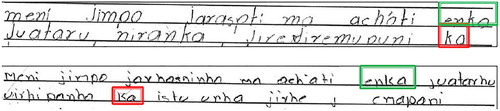 meni jimpo jaraspti ma achati enka
juataru, niranka, jirexiremupuni ka
Meni jimpo jarhaeninha ma achati enka juatarhu
virhipanho ka istu unha jirhe, j cnapani